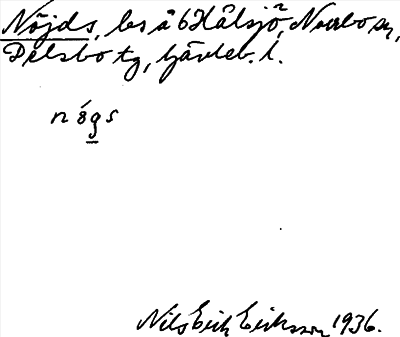 Nöjds, bes å 6 Hålsjö², Norrbo sn,
Delsbo tg, Gävleb. l.
n ó g s
Nils Erik Eriksson 1936.